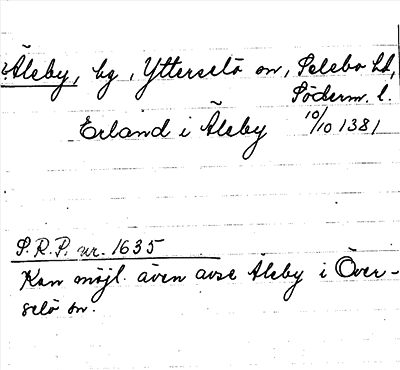 Åleby, by, Ytterselö sn, Selebo hd,
Söderm. l.
Erland i Åleby 10/10 1381
S.R.P. nr. 1635
Kan möjl. även avse Åleby i Över-
selö sn.